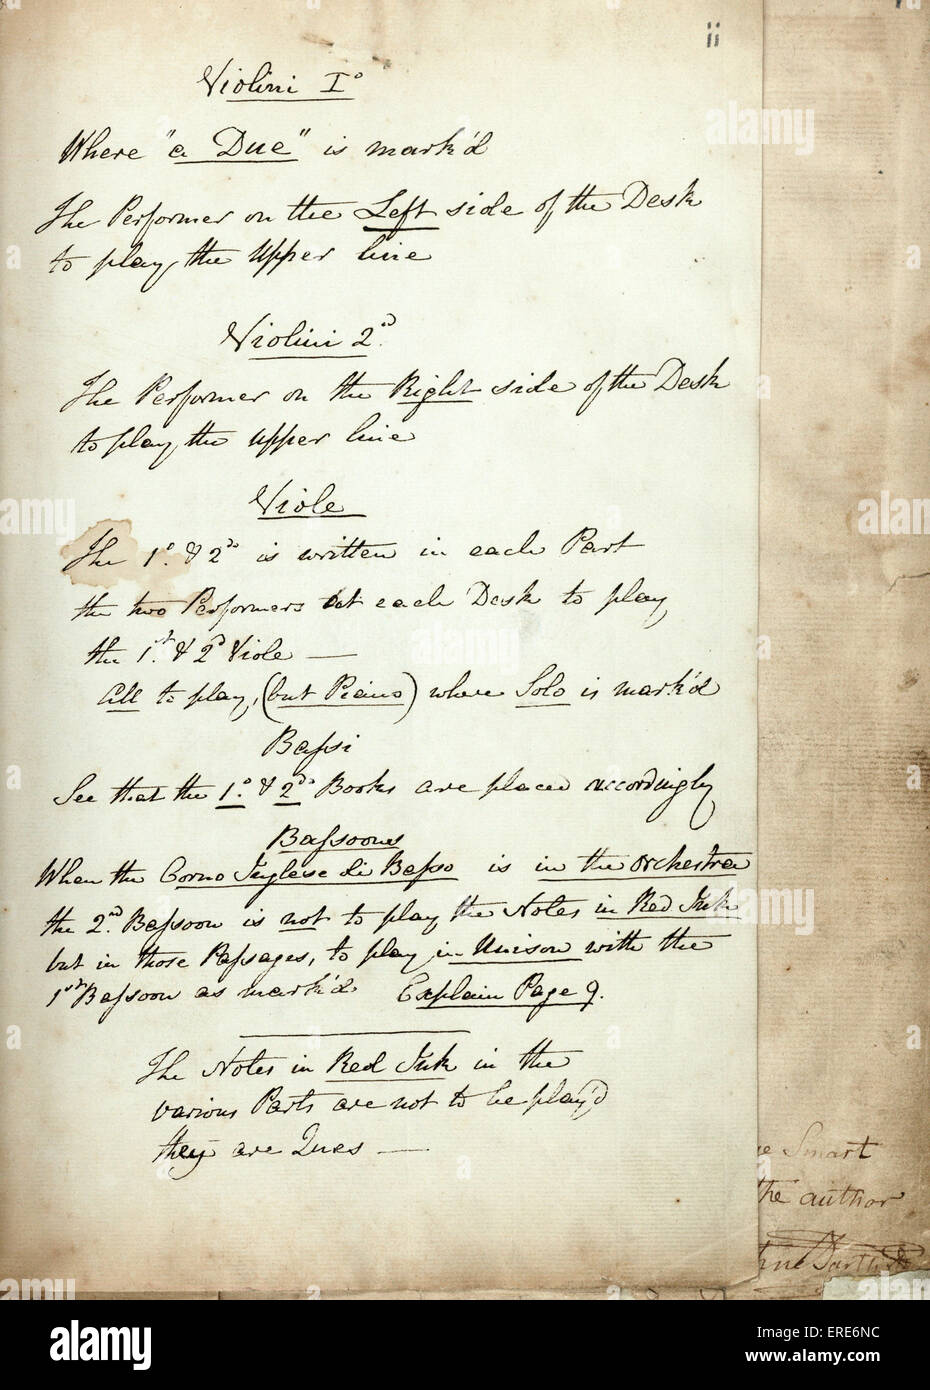 ii
Violini I°
Where "a Due" is mark'd
The Performer on the Left side of the Desk
to play the Upper line
Violini 2d.
The Performer on the Right side of the Desk
to play the upper line
Viole
The 1°. & 2do is written in each Part
the two Performers at each Desk to play
the 1st. & 2d Viole —
All to play, (but Piano) where Solo is mark'd
Baſsi
See that the 1°. & 2do. Books are placed accordingly
Baſsoons
When the Corno Inglese di Baſso is in the Orchestra
the 2nd. Baſsoon is not to play the Notes in Red Ink
but in those Paſsages, to play in Unison with the
1st Baſsoon as mark'd Explain Page 9.
The Notes in Red Ink in the
various Parts are not to be play'd
they are Ques —
ge Smart
the author
alamy
a
alamy stock photo
ERE6NC
www.alamy.com